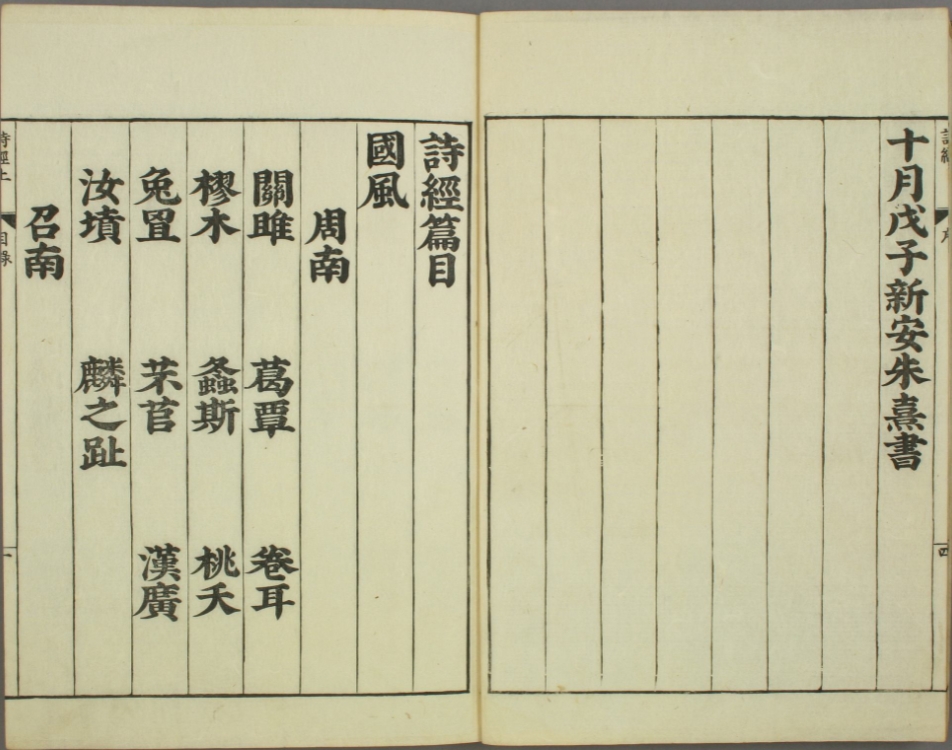 十月戊子新安朱熹書
詩經篇目
國風
周南
關雎　葛覃　卷耳
樛木　螽斯　桃夭
兔罝　芣苢　漢廣
汝墳　麟之趾
召南
詩經上　目録　一
四